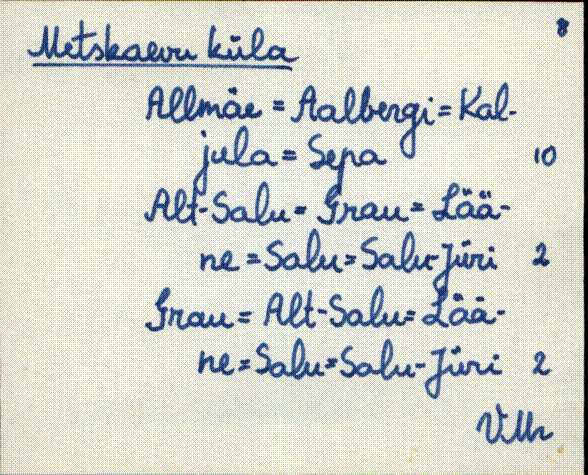 8
Metskaevu küla
Allmäe = Aalbergi = Kal-
jula = Sepa 10
Alt-Salu = Grau = Lää-
ne = Salu = Salu-Jüri 2
Grau = Alt-Salu = Lää-
ne = Salu = Salu-Jüri 2